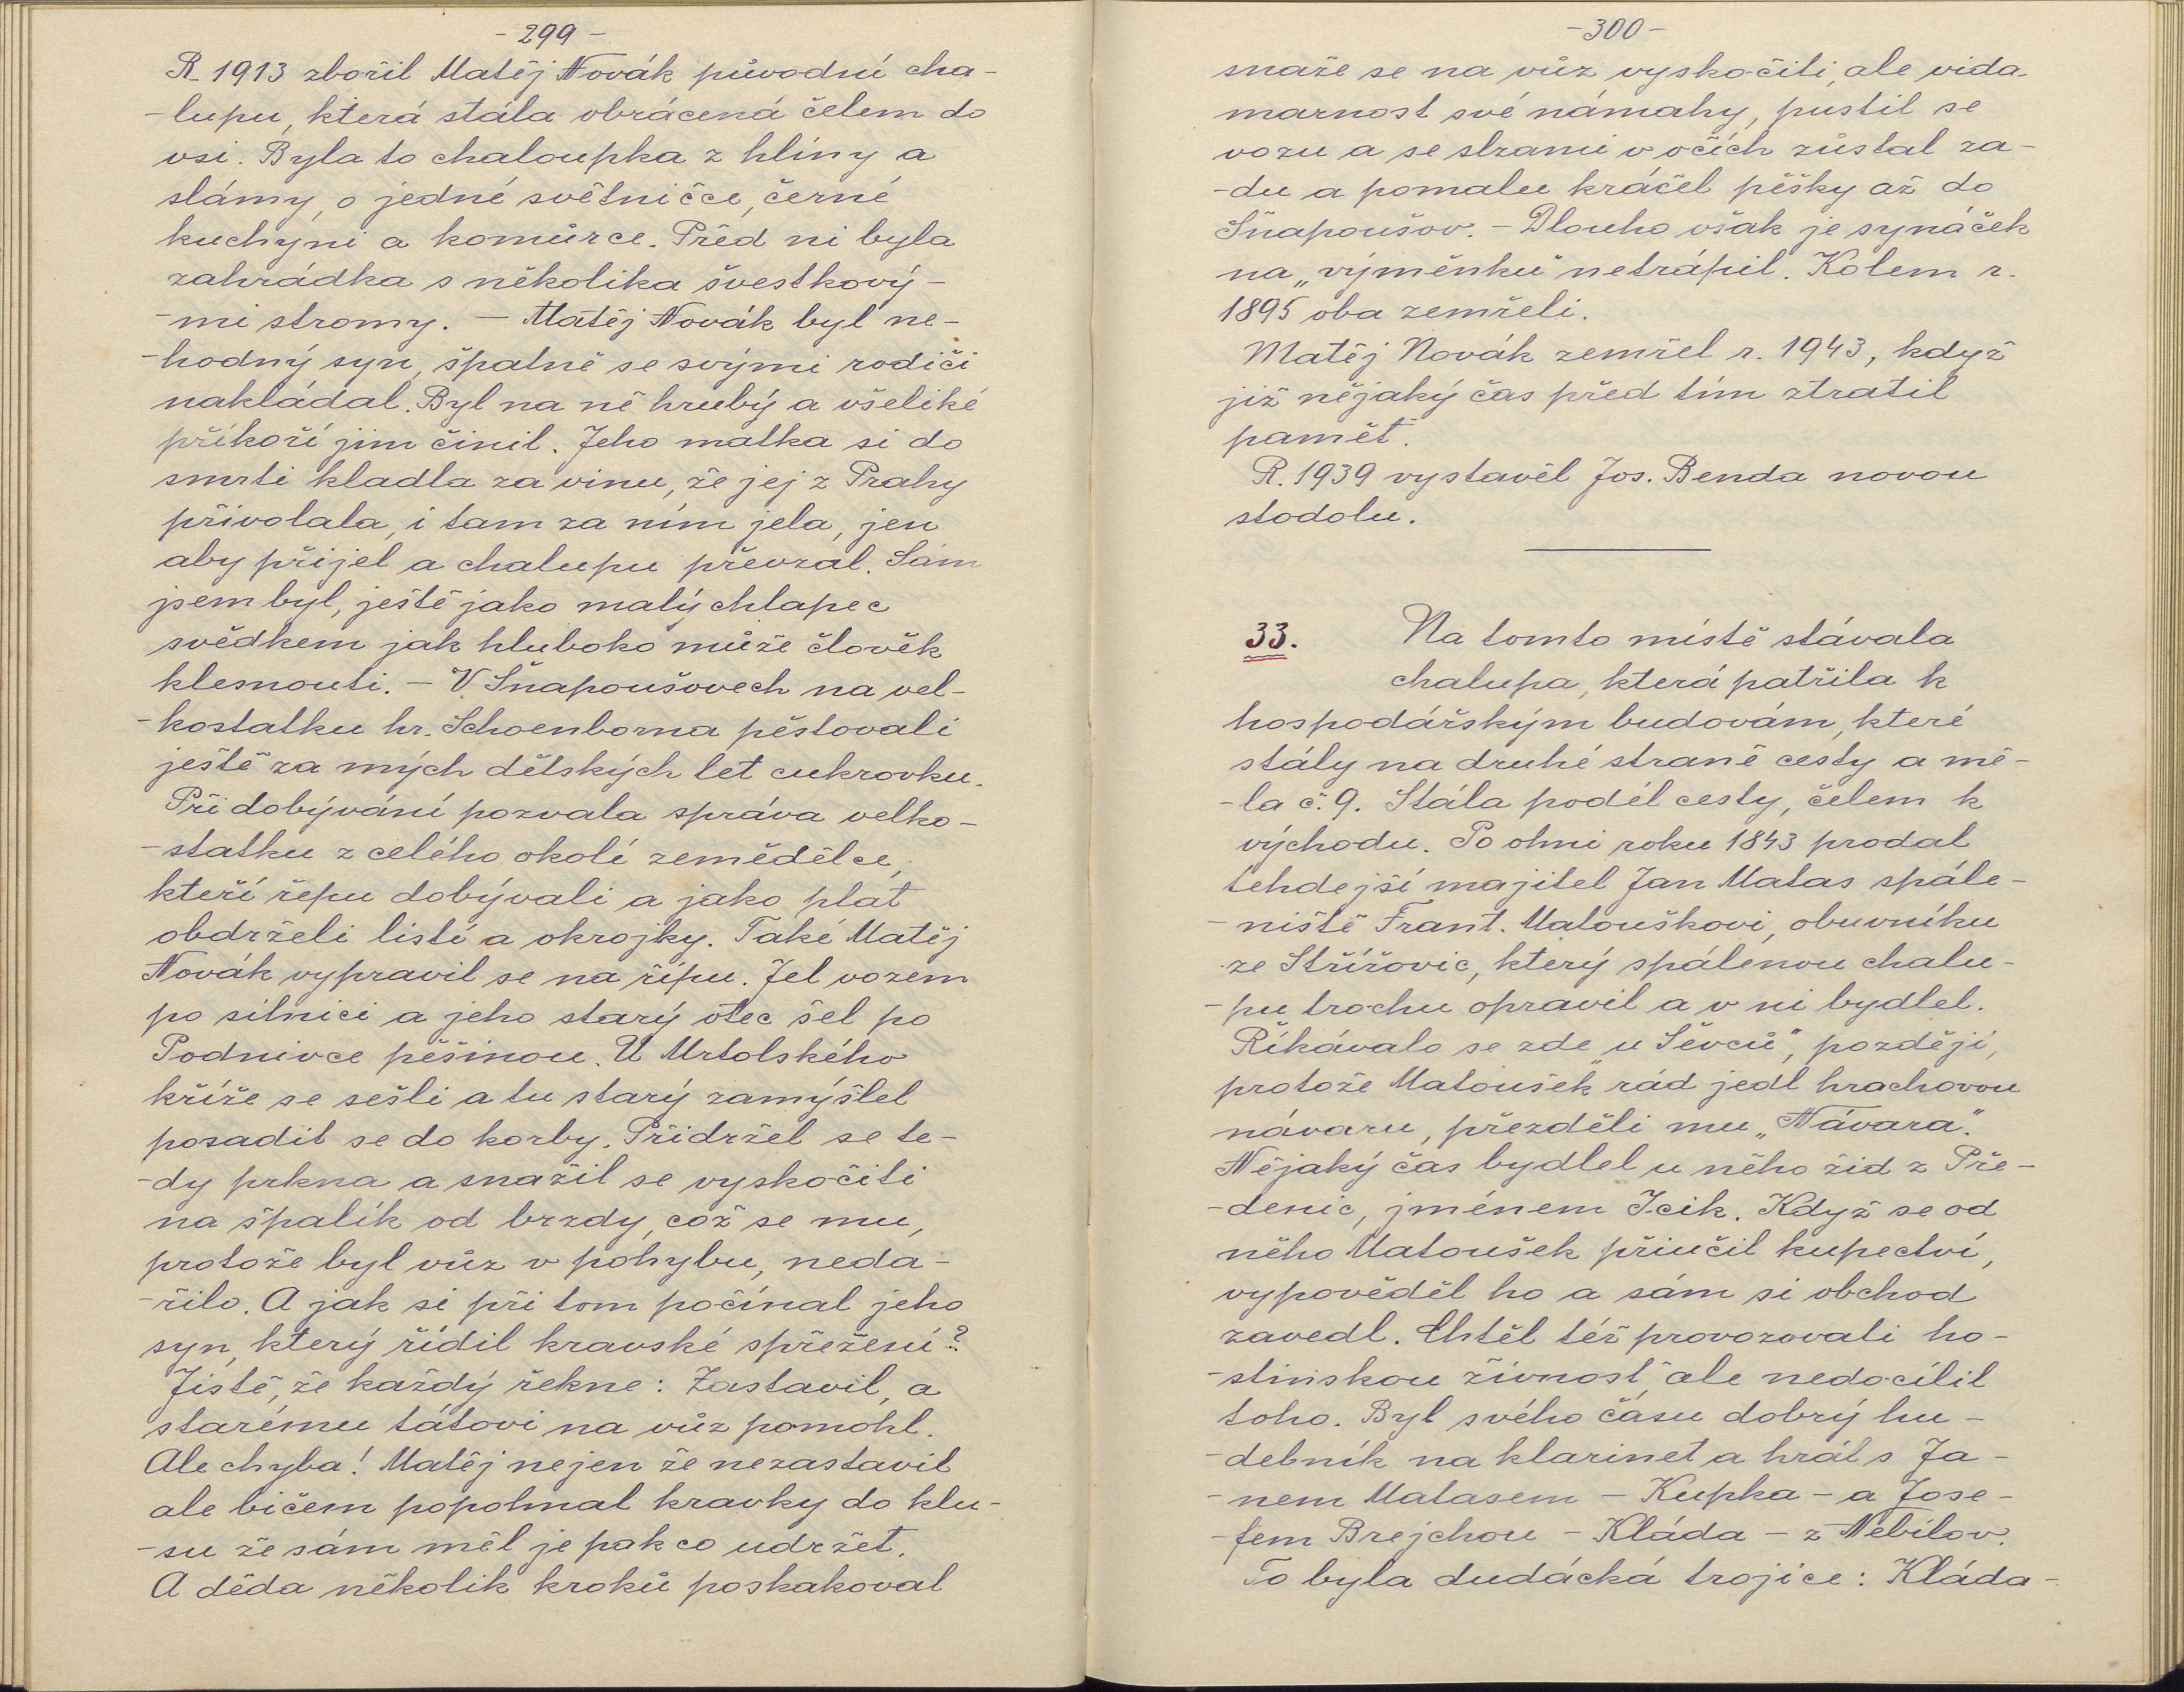 - 299 -
R. 1913 zbořil Matěj Novák původní cha-
-lupu, která stála obrácená čelem do
vsi. Byla to chaloupka z hlíny a
slámy, o jedné světničce, černé
kuchyni a komůrce. Před ni byla
zahrádka s několika švestkový-
-mi stromy. - Matěj Novák byl ne-
-hodný syn, špatně se svými rodiči
nakládal. Byl na ně hrubý a všeliké
příkoří jim činil. Jeho matka si do
smrti kladla za vinu, že jej z Prahy
přivolala, i tam za ním jela, jen
aby přijel a chalupu převzal. Sám
jsem byl, ještě jako malý chlapec
svědkem jak hluboko může člověk
klesnouti. - V Šnapoušovech na vel-
-kostatku hr. Schoenborna pěstovali
ještě za mých dětských let cukrovku.
Při dobývání pozvala správa velko-
-statku z celého okolí zemědělce,
kteří řepu dobývali a jako plat
obdrželi listí a okrojky. Také Matěj
Novák vypravil se na řípu. Jel vozem
po silnici a jeho starý otec šel po
Podnivce pěšinou. U Mrtolského
kříže se sešli a tu starý zamýšlel
posadit se do korby. Přidržel se te-
-dy prkna a snažil se vyskočiti
na špalík od brzdy, což se mu,
protože byl vůz v pohybu, neda-
-řilo. A jak si při tom počínal jeho
syn, který řídil kravské spřežení?
Jistě, že každý řekne: Zastavil, a
starému tátovi na vůz pomohl.
Ale chyba! Matěj nejen že nezastavil
ale bičem popohnal kravky do klu-
-su že sám měl je pak co udržet.
A děda několik kroků poskakoval
- 300 -
snaže se na vůz vyskočiti, ale vida
marnost své námahy, pustil se
vozu a se slzami v očích zůstal za-
-du a pomalu kráčel pěšky až do
Šnapoušov. - Dlouho však je synáček
na „výměnku" netrápil. Kolem r.
1895 oba zemřeli.
Matěj Novák zemřel r. 1943, když
již nějaký čas před tím ztratil
pamět.
R. 1939 vystavěl Jos. Benda novou
stodolu.
33. Na tomto místě stávala
chalupa, která patřila k
hospodářským budovám, které
stály na druhé straně cesty a mě-
-la č. 9. Stála podél cesty, čelem k
východu. Po ohni roku 1843 prodal
tehdejší majitel Jan Matas spále-
-niště Frant. Matouškovi, obuvníku
ze Střížovic, který spálenou chalu-
-pu trochu opravil a v ni bydlel.
Říkávalo se zde „u Ševců", později,
protože Matoušek rád jedl hrachovou
návaru, přezděli mu „Návara".
Nějaký čas bydlel u něho žid z Pře-
-denic, jménem Icik. Když se od
něho Matoušek přiučil kupectví,
vypověděl ho a sám si obchod
zavedl. Chtěl též provozovati ho-
-stinskou živnost, ale nedocílil
toho. Byl svého času dobrý hu-
-debník na klarinet a hrál s Ja-
-nem Matasem - Kupka - a Jose-
-fem Brejchou - Kláda - z Nebílov.
To byla dudácká trojice: Kláda-